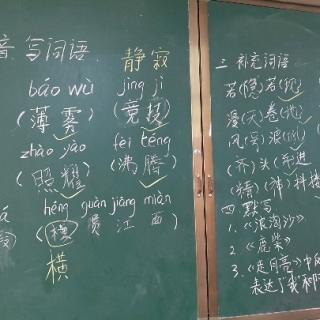 音 写词语 静寂
báo wù jìng jì
(薄雾) (竞技)
zhào yào fèi téng
(照耀) (沸腾)
héng guàn jiāng miàn
(横 贯 江 西)
横
三 补充词语
若(隐)若(现)
漫(天)卷(地)
风(平)浪(静)
(齐)头(并进)
(精)(神)抖擞
四 默写
1.《浪淘沙》
2.《鹿柴》
3.《走月亮》中
表达了"我"和